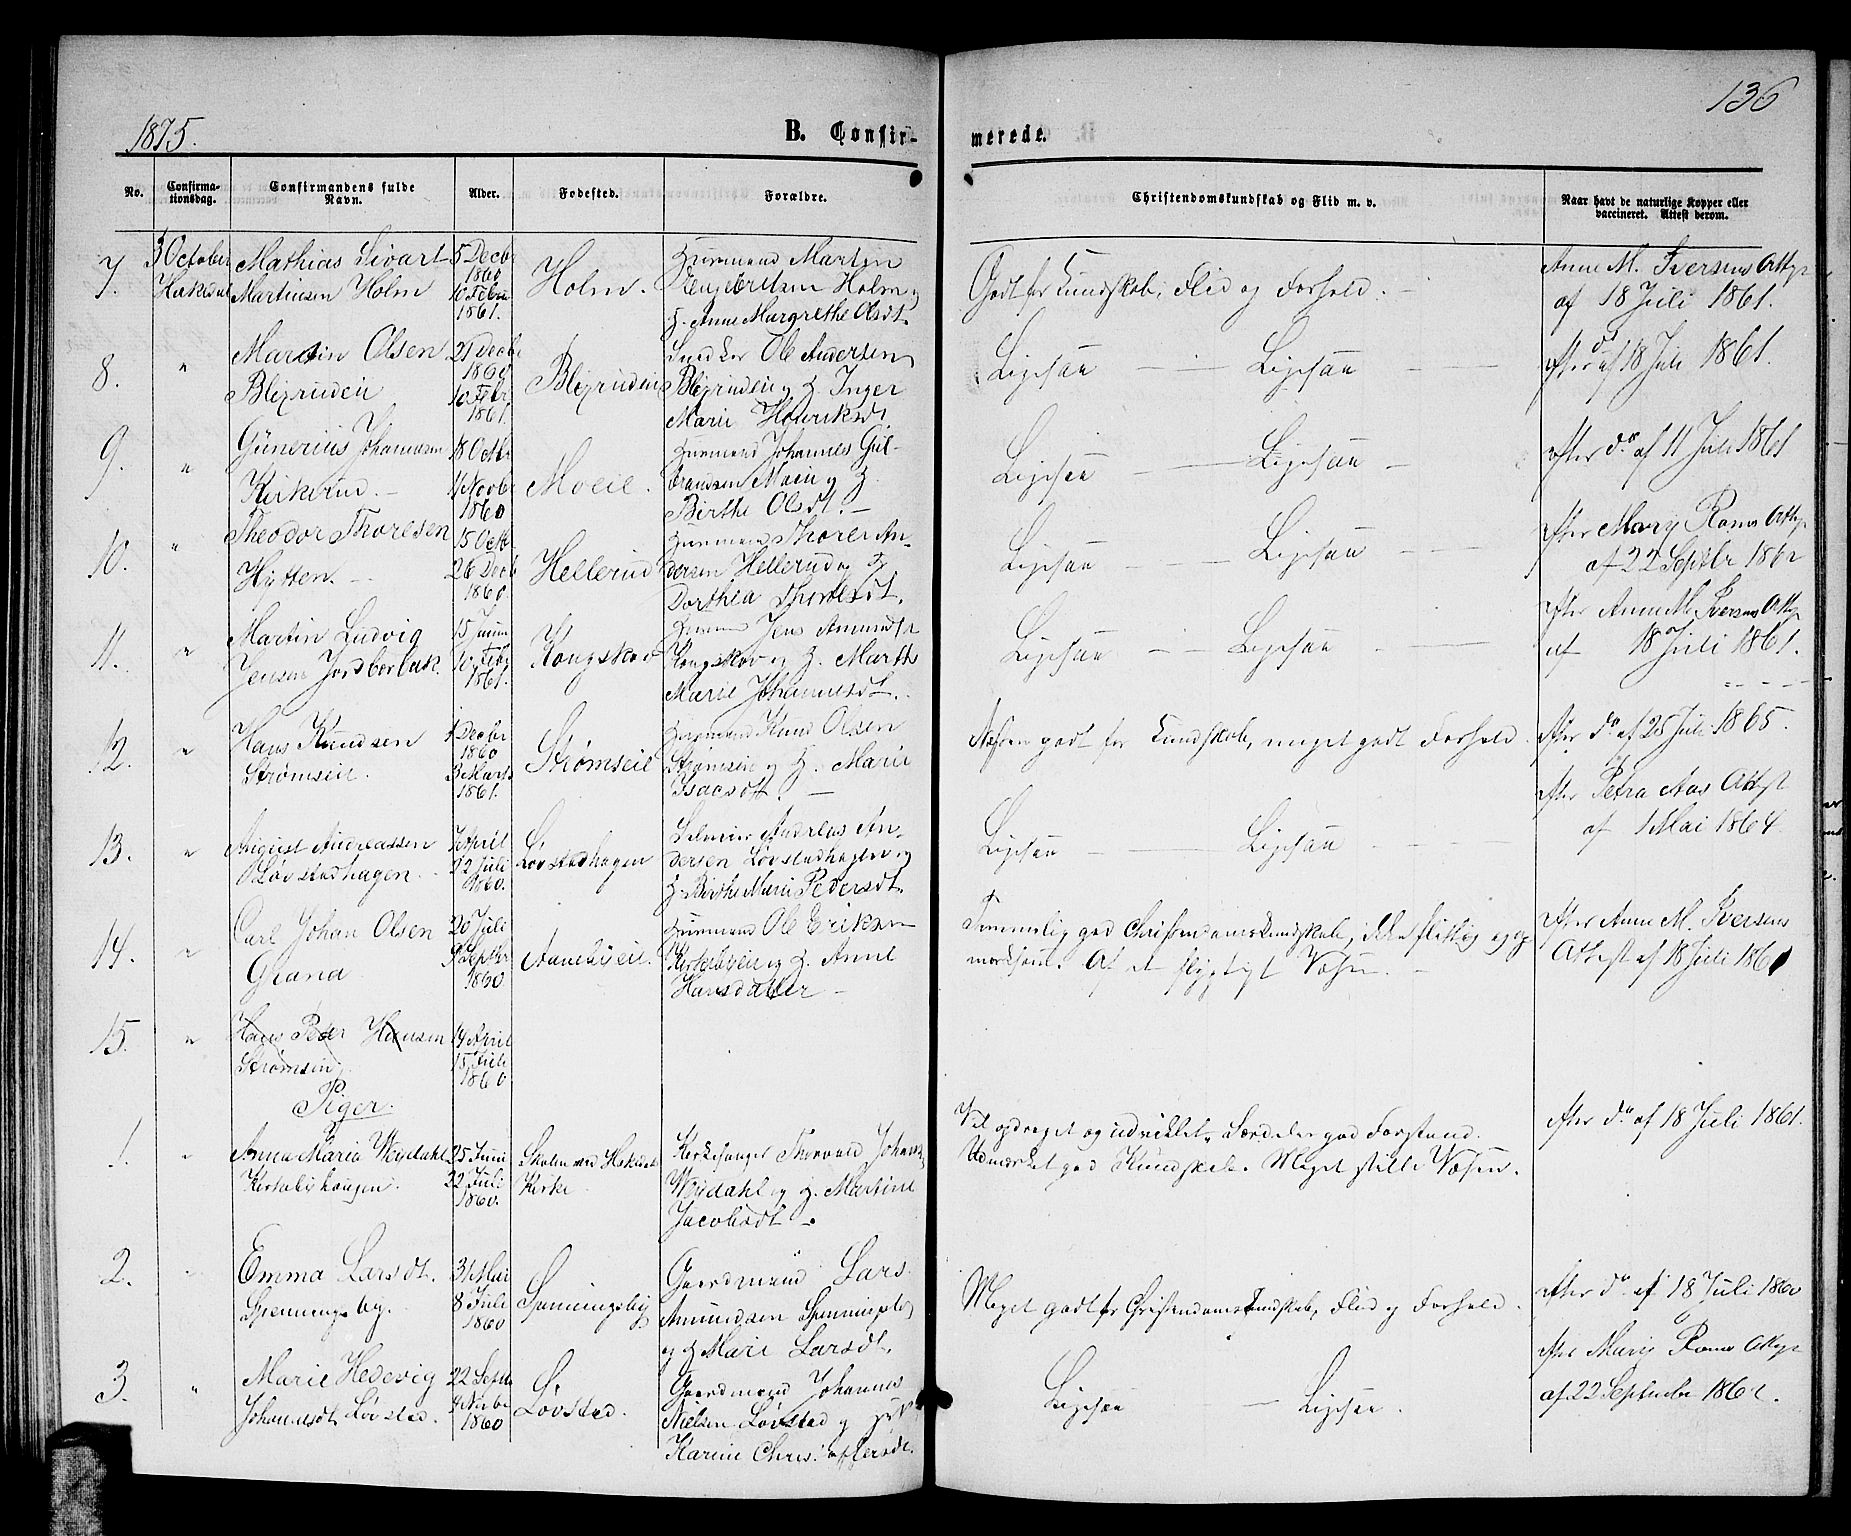 136
1875.
B. Confir-
merede.
No.
Confirma-
tionsdag.
Confirmandens fulde
Navn.
Alder.
Fødested.
Forældre.
Christendomskundskab og Flid m. v.
Naar havt de naturlige Kopper eller
vaccineret. Attest derom.
7.
3 October
Hakedal
Mathias Sivart
Martinsen Holm
5 Decbr
1860
10 Febr
1861.
Holm.
Huusmand Martin
Engebretsen Holm og
H. Anne Margrethe Olsdt.
Godt for Kundskab, Flid og Forhold.
Anne M. Iversens Attest
af 18 Juli 1861.
8.
"
Martin Olsen
Blejrudeie
21 Decbr
1860
10 Febr
1861.
Blejrudeie
Ole Andersen
Blejrudeie og H. Inger
Marie Henriksdt.
Ligesaa — — Ligesaa — —
efter do af 18 Juli 1861.
9.
"
Gunerius Johannesen
Kirkerud. –
18 Octbr
11 Novbr
1860
Moeie.
Huusmand Johannes Gul-
brandsen Moeie og H.
Birthe Olsdt. –
Ligesaa — — Ligesaa –
efter do af 11 Juli 1861
10.
"
Theodor Thoresen
Hytten. –
15 Octbr
26 Decb
1860.
Hellerud
Huusmand Thorer An-
dersen Hellerud og H
Dorthea Thorersdt.
Ligesaa — — Ligesaa — —
efter Mary Roms Attest
af 22 Septbr 1862
11.
"
Martin Ludvig
Jensen Jordbærbak.
15 Januar
10 Febr
1861.
Kongskov
Huusmand Jens Amundsen
Kongskov og H. Marthe
Marie Johannesdt.
Ligesaa — — Ligesaa — —
efter Anne M. Iversens Attest
af 18 Juli 1861.
12.
"
Hans Knudsen
Strømseie.
1 Decbr
1860
3 Marts
1861.
Strømseie
Huusmand Knud Olsen
Strømseie og H. Marie
Isacsdt. –
Næsten godt for Kundskab, meget godt Forhold.
efter do af 25 Juli 1865.
13.
"
August Andreassen
Løvstadhagen.
1 April
22 Juli
1860.
Løvstadhagen
Andreas An-
dersen Løvstadhagen og
H. Birthe Marie Pedersdt.
Ligesaa — — Ligesaa — —
efter Petra Aas Attest
af 1 Mai 1864.
14.
"
Carl Johan Olsen
Grana
20 Juli
9 Septbr
1860
Annebyeie.
Huusmand Ole Eriksen
Kirkebyeie og H. Anne
Hansdatter –
Temmelig god Christendomskundskab, ikke flittig og op-
mærksom. Af et flygtigt Væsen. –
efter Anne M. Iversens
Attest af 18 Juli 1861
15.
"
Hans Peder Hansen
Strømseie
14 April
15 Juli
1860
Piger.
1.
"
Anna Maria Wejdahl
Kirkebyhaugen.
25 Juni
22 Juli
1860.
Skolen ved Hakedals
Kirke.
Kirkesanger Thorvald Johans.
Wejdahl og H. Martine
Jacobsdt –.
Vel opdraget og udviklet. Særdeles god Forstand.
Udmærket god Kundskab. Meget stille Væsen.
efter do af 18 Juli 1861.
2.
Emma Larsdt.
Spenningsby.
31 Mai
8 Juli
1860
Spenningsby
Gaardmand Lars
Amundsen Spenningsby
og H Mari Larsdt.
Meget godt for Christendomskundskab, Flid og Forhold.
efter do af 18 Juli 1860
3.
"
Marie Hedevig
Johannesdt. Løvstad.
22 Septbr
4 Novbr
1860
Løvstad.
Gaardmand Johannes
Nielsen Løvstad og H
Karine Christoffersdt.
Ligesaa — Ligesaa.
efter Mary Roms Attest
af 22 September 1862.